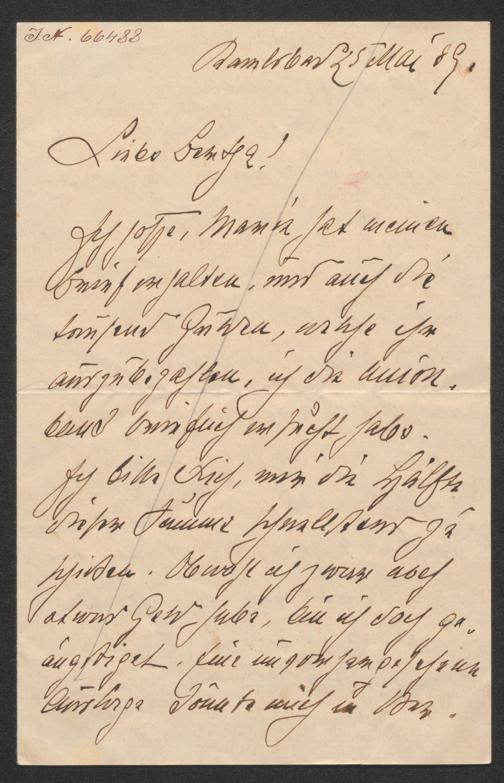 I.N. 66488
Karlsbad 25 Mai 89.
Liebe Bertha!
Ich hoffe, Marie hat meinen
Brief erhalten, und auch die
tausend Gulden, welche ihr
auszubezahlen, ich die Union-
bank brieflich ersucht habe.
Ich bitte Dich, mir die Hälfte
dieser Summe schnellstens zu
schicken. Obwohl ich zwar noch
etwas Geld habe, bin ich doch ge-
ängstiget. Eine unvorhergesehene
Auslage könnte mich in Ver-